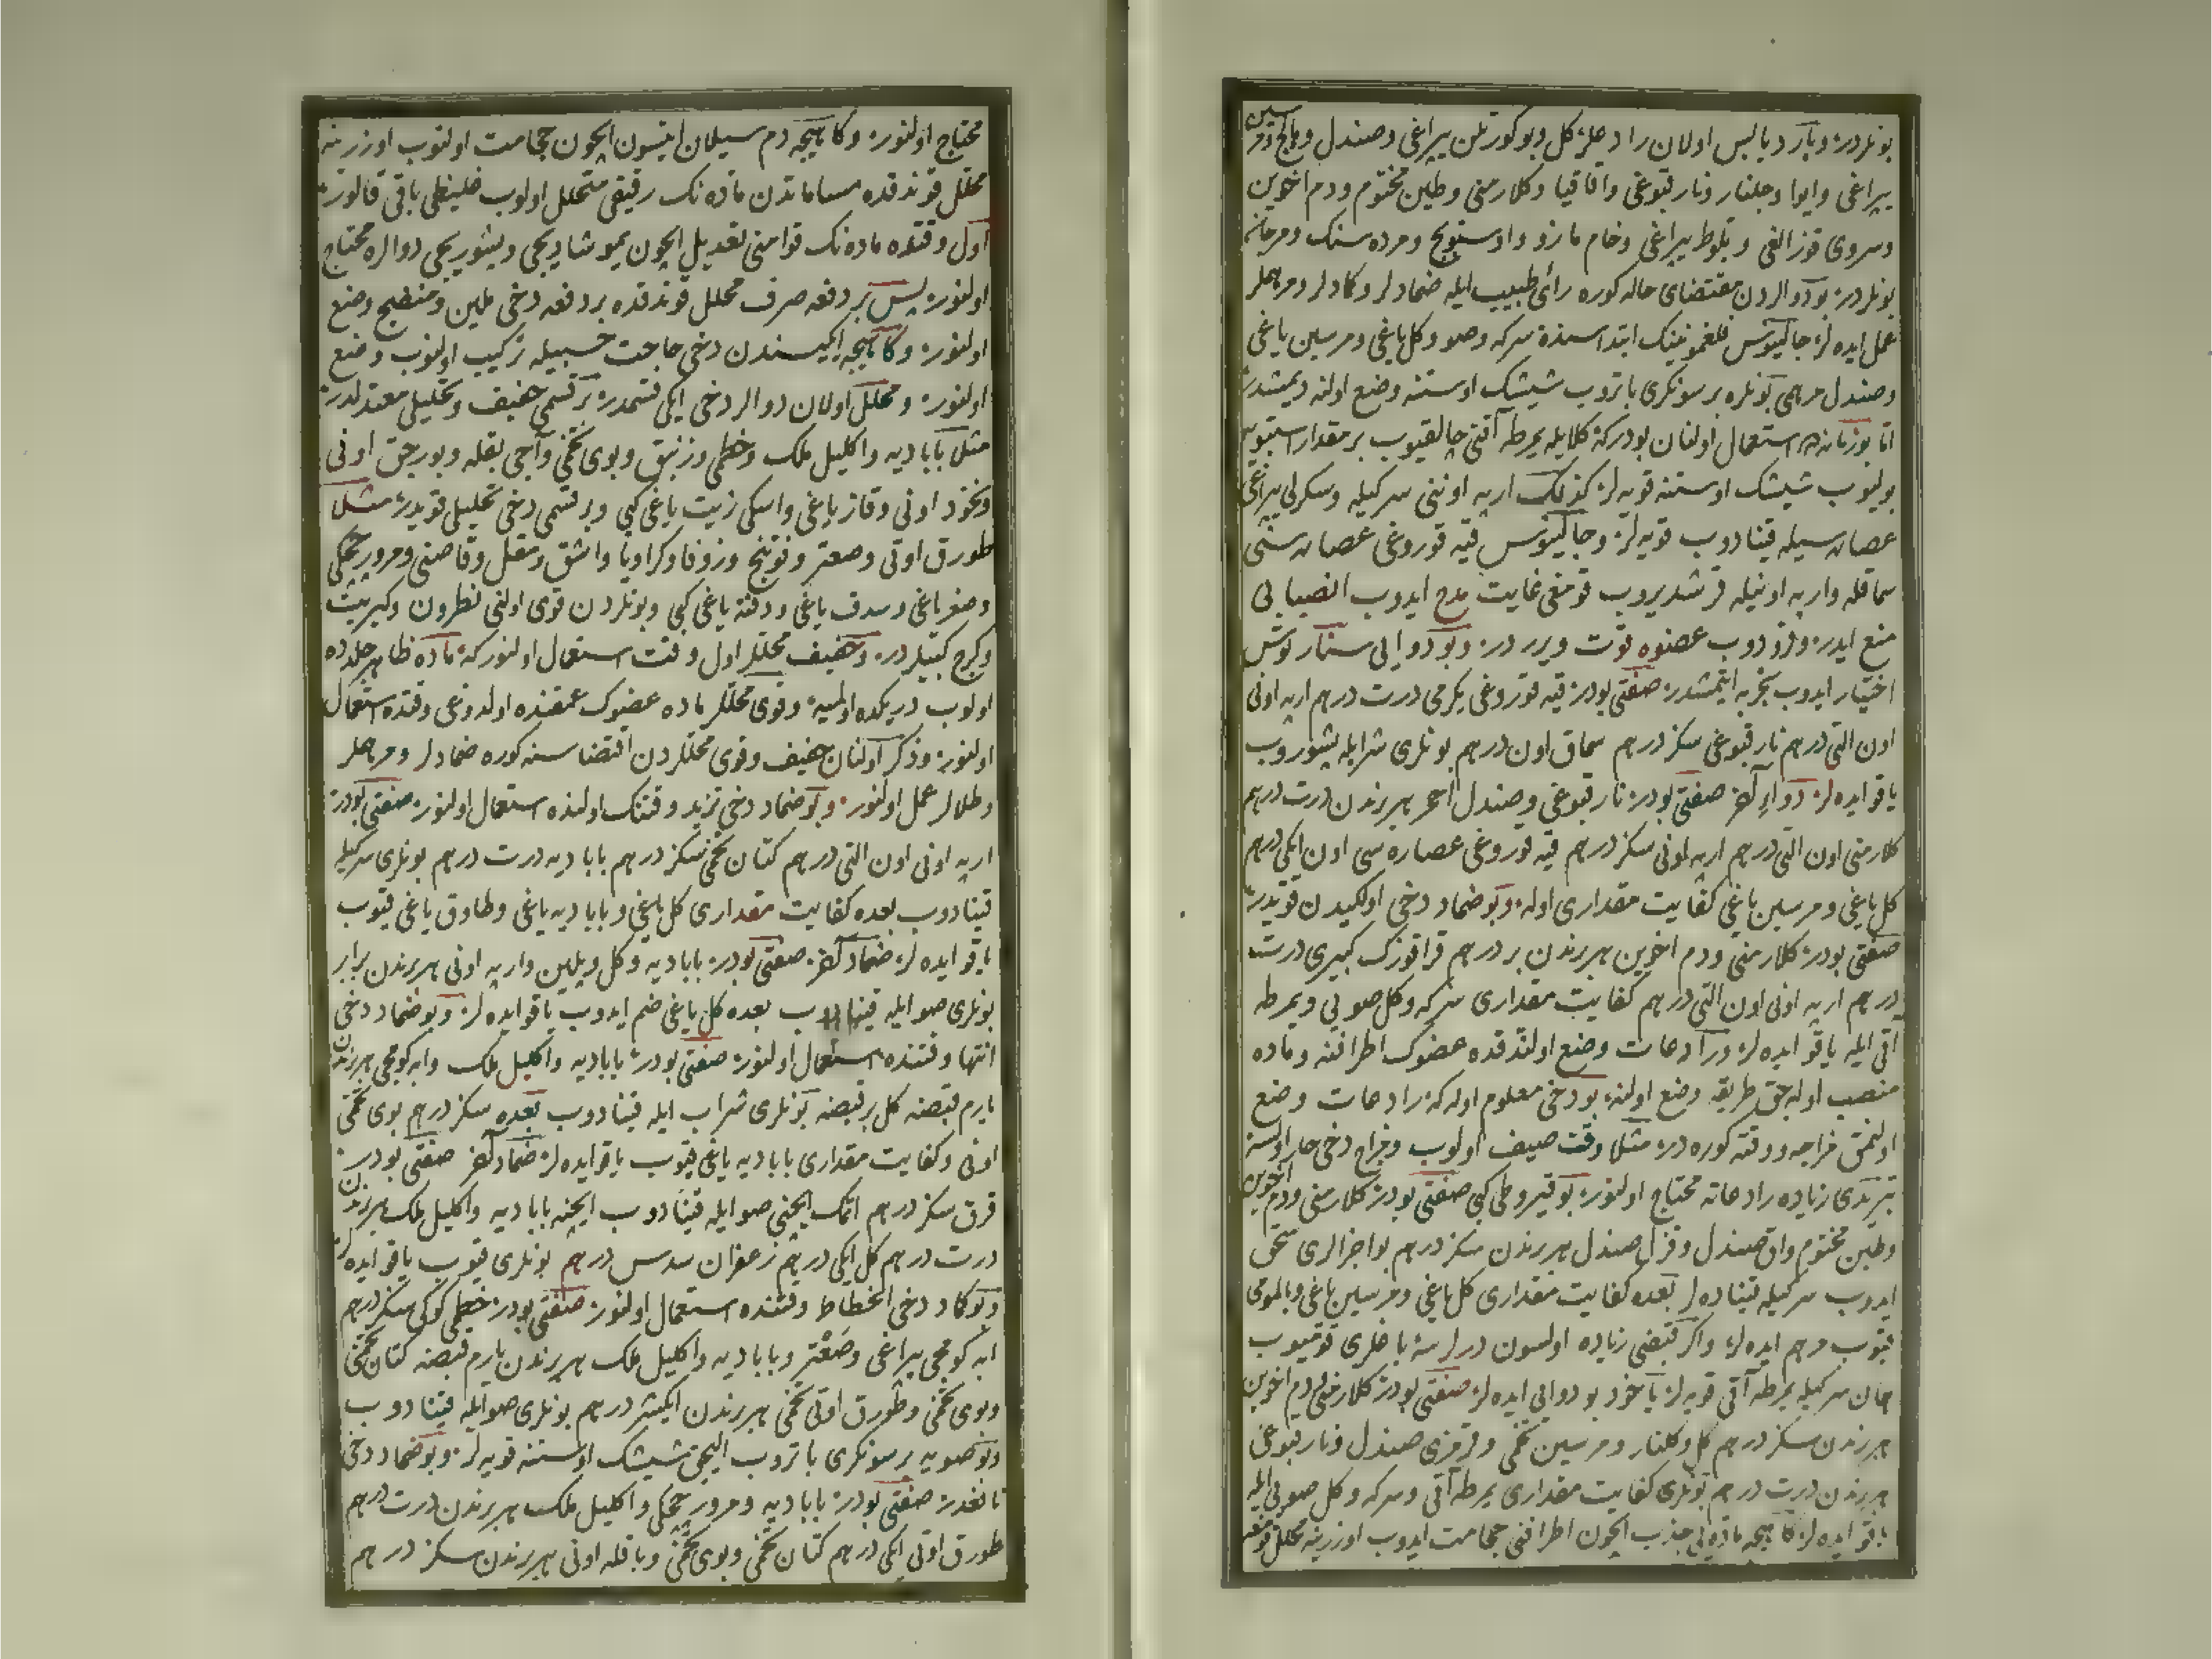 بونلردر وبارد يابس اولان رادعلر كل وبوكورتلن يپراغى وصندل
يپراغى وايوا وجلنار ونار قبوغى واقاقيا وكلارمنى وطين مختوم ودم اخوين
وسروى قوزالغى وبلوط يپراغى وخام مازو واوستوبج ومرده سنك ومرجاندر
بونلردر بو دوالردن مقتضاى حاله كوره رأى طبيب ايله ضمادلر وكمادلر ومرهملر
عمل ايده لر جالينوس فلغمونينك ابتداسنده سركه وصو وكل ياغى ومرسين ياغى
وصندل مرهمى بونلره بر سونكرى باتروب شيشك اوستنه وضع اولنه ديمشدر
اما بو زمانده استعمال اولنان بودركه كلابله يمرطه آقنى چالقيوب بر مقدار استوبيه
بوليوب شيشك اوستنه قويه لر كذلك ارپه اوننى سركيله وسكرلى يپراغى
عصاره سيله قينادوب قويه لر وجالينوس قيه قوروغى عصاره سنى
سماقله وارپه اونيله قرشديروب قومغى غايت مدح ايدوب انصبابى
منع ايدر وقزدوب عضوه قوت ويرر در وبو دوايى ستارنوش
اختيار ايدوب تجربه ايتمشدر صفتى بودر قيه قوروغى يكرمى درت درهم ارپه اونى
اون التى درهم نار قبوغى سكز درهم سماق اون درهم بونلرى شرابله پشوروب
ياقو ايده لر دواء آخر صفتى بودر نار قبوغى وصندل احمر هر برندن درت درهم
كلارمنى اون التى درهم ارپه اونى سكز درهم قيه قوروغى عصاره سى اون ايكى درهم
كل ياغى ومرسين ياغى كفايت مقدارى اوله وبو ضماد دخى اولكيدن قويدر
صفتى بودر كلارمنى ودم اخوين هر برندن بر درهم قراقوزك كبيرى درت
درهم ارپه اونى اون التى درهم كفايت مقدارى سركه وكل صويى ويمرطه
آقى ايله ياقو ايده لر ورادعات وضع اولندقده عضوك اطرافنه وماده
منصب اوله جق طريقه وضع اولنه بو دخى معلوم اوله كه رادعات وضع
اولنمق مزاجه ووقته كوره در مثلا وقت صيف اولوب ومزاج دخى حار اولسه
تبريدى زياده رادعاته محتاج اولنور بو قيروطى كبى صفتى بودر كلارمنى ودم اخوين
وطين مختوم واق صندل وقزل صندل هر برندن سكز درهم بو اجزالرى سحق
ايدوب سركيله قيناده لر بعده كفايت مقدارى كل ياغى ومرسين ياغى وبالمومى
قيوب مرهم ايده لر واكر قبضى زياده اولسون درلرسه
همان سركيله يمرطه آقى قويه لر ياخود بو دوايى ايده لر صفتى بودر كلارمنى ودم اخوين
هر برندن سكز درهم كل وكلنار ومرسين تخمى وقرمزى صندل ونار قبوغى
هر برندن درت درهم بونلرى كفايت مقدارى يمرطه آقى وسركه وكل صويى ايله
ياقو ايده لر كاهيجه ماده يى جذب ايچون اطرافنى حجامت ايدوب اوزرينه محلل
محتاج اولنور وكاهيجه دم سيلان ايتسون ايچون حجامت اولنوب اوزرينه
محلل قوندقده مساماتدن ماده نك رقيقى متحلل اولوب غليظى باقى قالور
اول وقتده ماده نك قوامنى تعديل ايچون يموشاديجى وپشوريجى دوالره محتاج
اولنور پس بر دفعه صرف محلل قوندقده بر دفعه دخى ملين ومنضج وضع
اولنور وكاهيجه ايكيسندن دخى حاجت حسبيله تركيب اولنوب وضع
اولنور ومحلل اولان دوالر دخى ايكى قسمدر بر قسمى خفيف وتحليلى معتدلدر
مثلا بابادیه واكليل ملك وخطمى وزنبق وبوى تخمى وآجى بقله وبورجق اونى
ونخود اونى وقاز ياغى واسكى زيت ياغى كبى وبر قسمى دخى تحليلى قويدر مثلا
طورق اوتى وصعتر وفوتنج وزوفا وكراويا واشق ومقل وقاصنى ومرور چچكى
وصغر ياغى وسدف ياغى ودفنه ياغى كبى وبونلردن قوى اولنى نطرون وكبريت
وكرج كبيلردر وخفيف محللر اول وقت استعمال اولنور كه ماده ظاهر جلدده
اولوب دريكده اولميه وقوى محللر ماده عضوك عمقنده اولدوغى وقتده استعمال
اولنور وذكر اولنان خفيف وقوى محللردن اقتضاسنه كوره ضمادلر ومرهملر
وطلالر عمل اولنور وبو ضماد دخى تزيد وقتنك اولنده استعمال اولنور صفتى بودر
ارپه اونى اون التى درهم كتان تخمى سكز درهم بابادیه درت درهم بونلرى سركيله
قينادوب بعده كفايت مقدارى كل ياغى وبابادیه ياغى وطاوق ياغى قيوب
ياقو ايده لر ضماد آخر صفتى بودر بابادیه وكل وپلين وارپه اونى هر برندن برابر
بونلرى صو ايله قينادوب بعده كل ياغى ضم ايدوب ياقو ايده لر وبو ضماد دخى
انتها وقتنده استعمال اولنور صفتى بودر بابادیه واكليل ملك وابه كومجى هر برندن
يارم قبضه كل بر قبضه بونلرى شراب ايله قينادوب بعده سكز درهم بوى تخمى
اونى وكفايت مقدارى بابادیه ياغى قيوب ياقو ايده لر ضماد آخر صفتى بودر
قرق سكز درهم اتمك ايچنى صو ايله قينادوب ايچنه بابادیه واكليل ملك هر برندن
درت درهم كل ايكى درهم زعفران سدس درهم بونلرى قيوب ياقو ايده لر
وبو كماد دخى انحطاط وقتنده استعمال اولنور صفتى بودر خطمى كوكى سكز درهم
ابه كومجى يپراغى وصعتر وبابادیه واكليل ملك هر برندن يارم قبضه كتان تخمى
وبوى تخمى وطورق اوتى تخمى هر برندن ايكيشر درهم بونلرى صو ايله قينادوب
وبو صويه بر سونكرى باتروب اليجق شيشك اوستنه قويه لر وبو ضماد دخى
نافعدر صفتى بودر بابادیه ومرور چچكى واكليل ملك هر برندن درت درهم
طورق اوتى ايكى درهم كتان تخمى وبوى تخمى وباقله اونى هر برندن سكز درهم